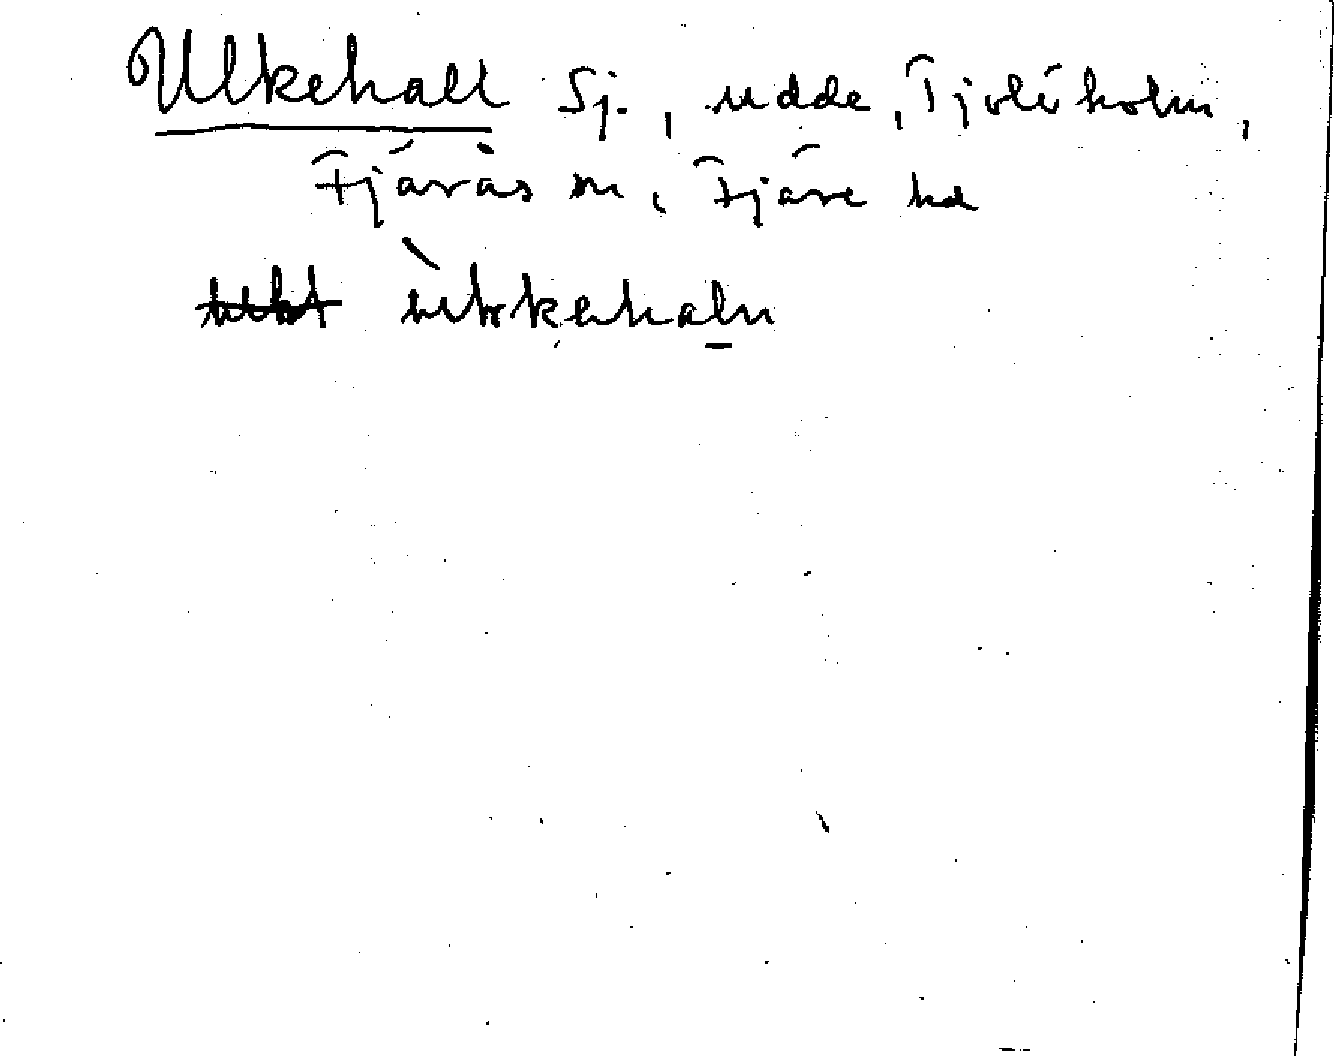 Ulkehall Sj., udde, Tjolöholm,
Fjärås sn, Fjäre hd